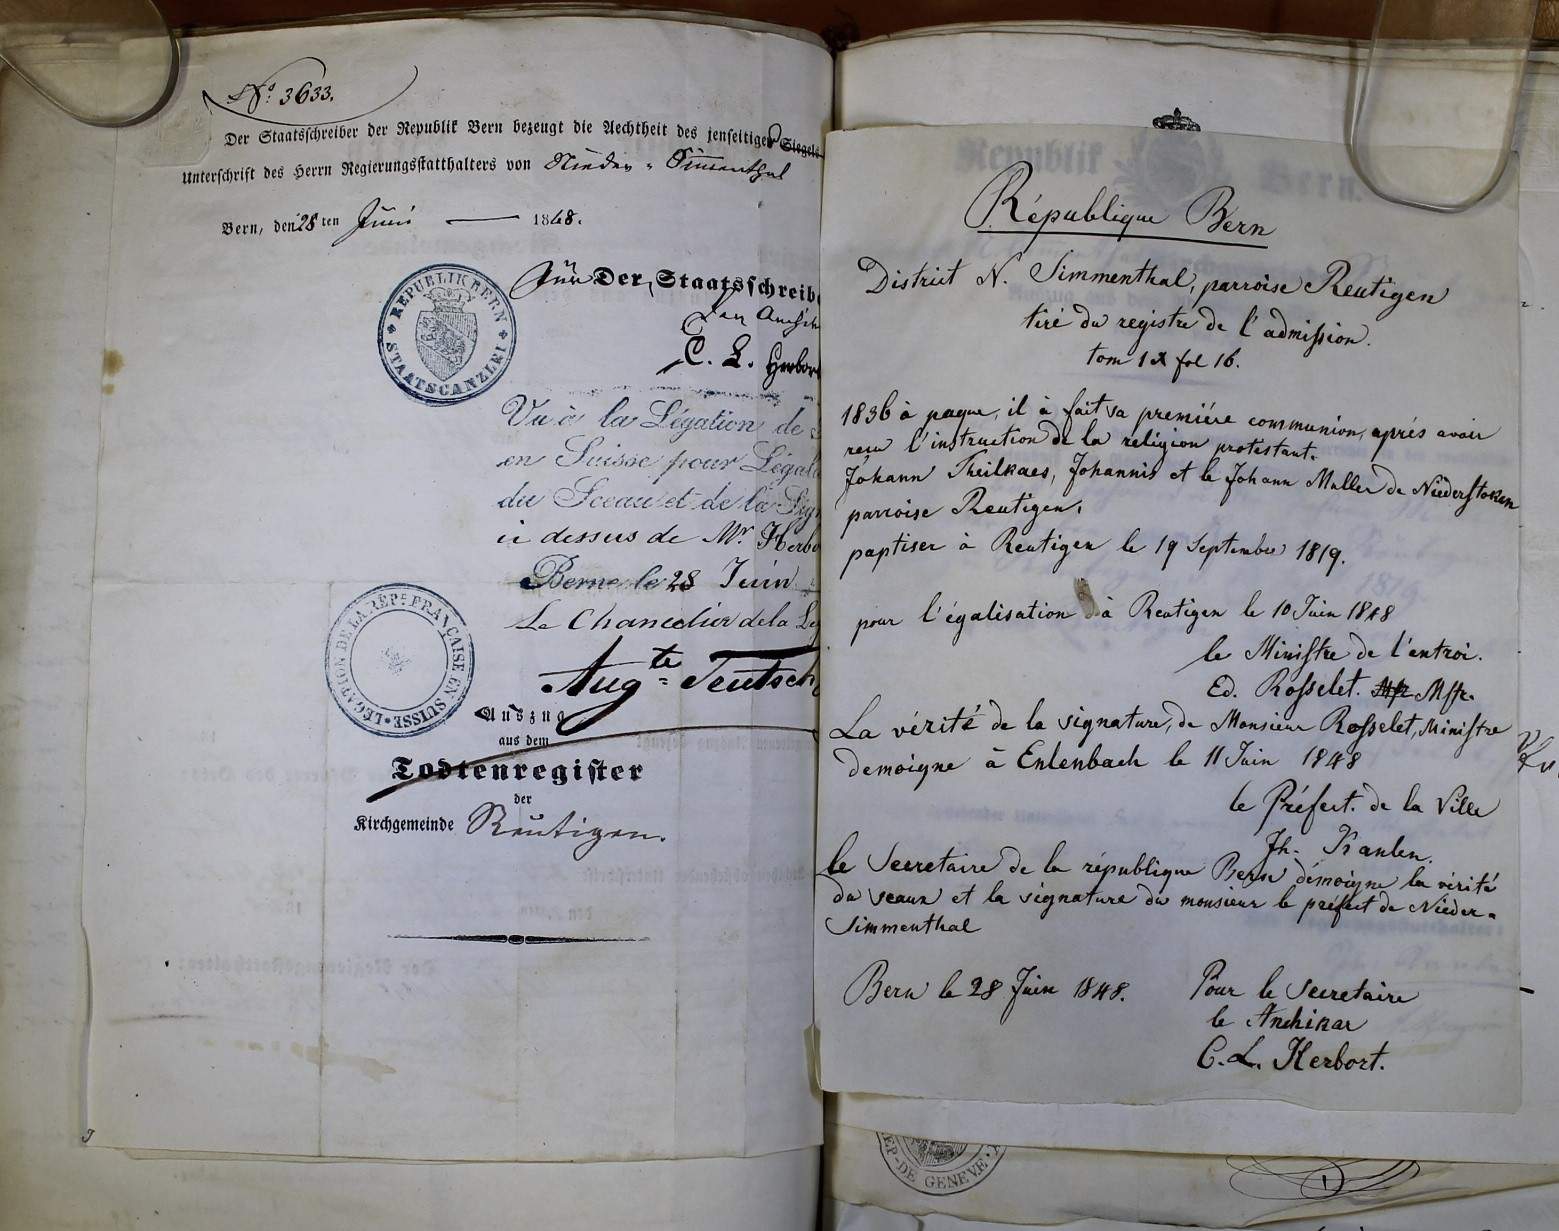 N.º 3633.
Der Staatsschreiber der Republik Bern bezeugt die Aechtheit des jenseitigen Siegels
Unterschrift des Herrn Regierungsstatthalters von Nieder-Simmenthal
Bern, den 28ten Juni 1848.
REPUBLIK BERN
STAATSCANZLEI
Für Der Staatsschreib
C. L. Herbor
Vu à la Légation de
en Suisse pour Légal
du Sceau et de la Sig
ci dessus de Mr Herbo
Berne le 28 Juin
Le Chancelier de la Lé
Augte Teutsch
LÉGATION DE LA RÉP. FRANÇAISE EN SUISSE
Auszug
aus dem
Todtenregister
der
Kirchgemeinde Reutigen.
Republik Bern.
République Bern
District N. Simmenthal, parroise Reutigen
tiré du registre de l'admission.
tom 1 fol 16.
1836 à paque, il à fait sa première communion, aprés avoir
reçu l'instruction de la religion protestant.
Johann Theilkaes, Johannis et le Johann Muller de Niederstoken
parroise Reutigen,
paptiser à Reutigen le 19 Septembre 1819.
pour l'égalisation à Reutigen le 10 Juin 1848
le Ministre de l'entroi.
Ed. Rosselet. Mstr.
La vérité de la signature, de Monsieur Rosselet, Ministre
demoigne à Enlenbach le 11 Juin 1848
le Préfect. de la Ville
Jh. Kanlen.
le Secretaire de la république Bern démoigne la vérité
du seaux et la signature du monsieur le préfect de Nieder-
Simmenthal
Bern le 28 Juin 1848.
Pour le Secretaire
le Archikar
C. L. Herbort.
EP. DE GENEVE